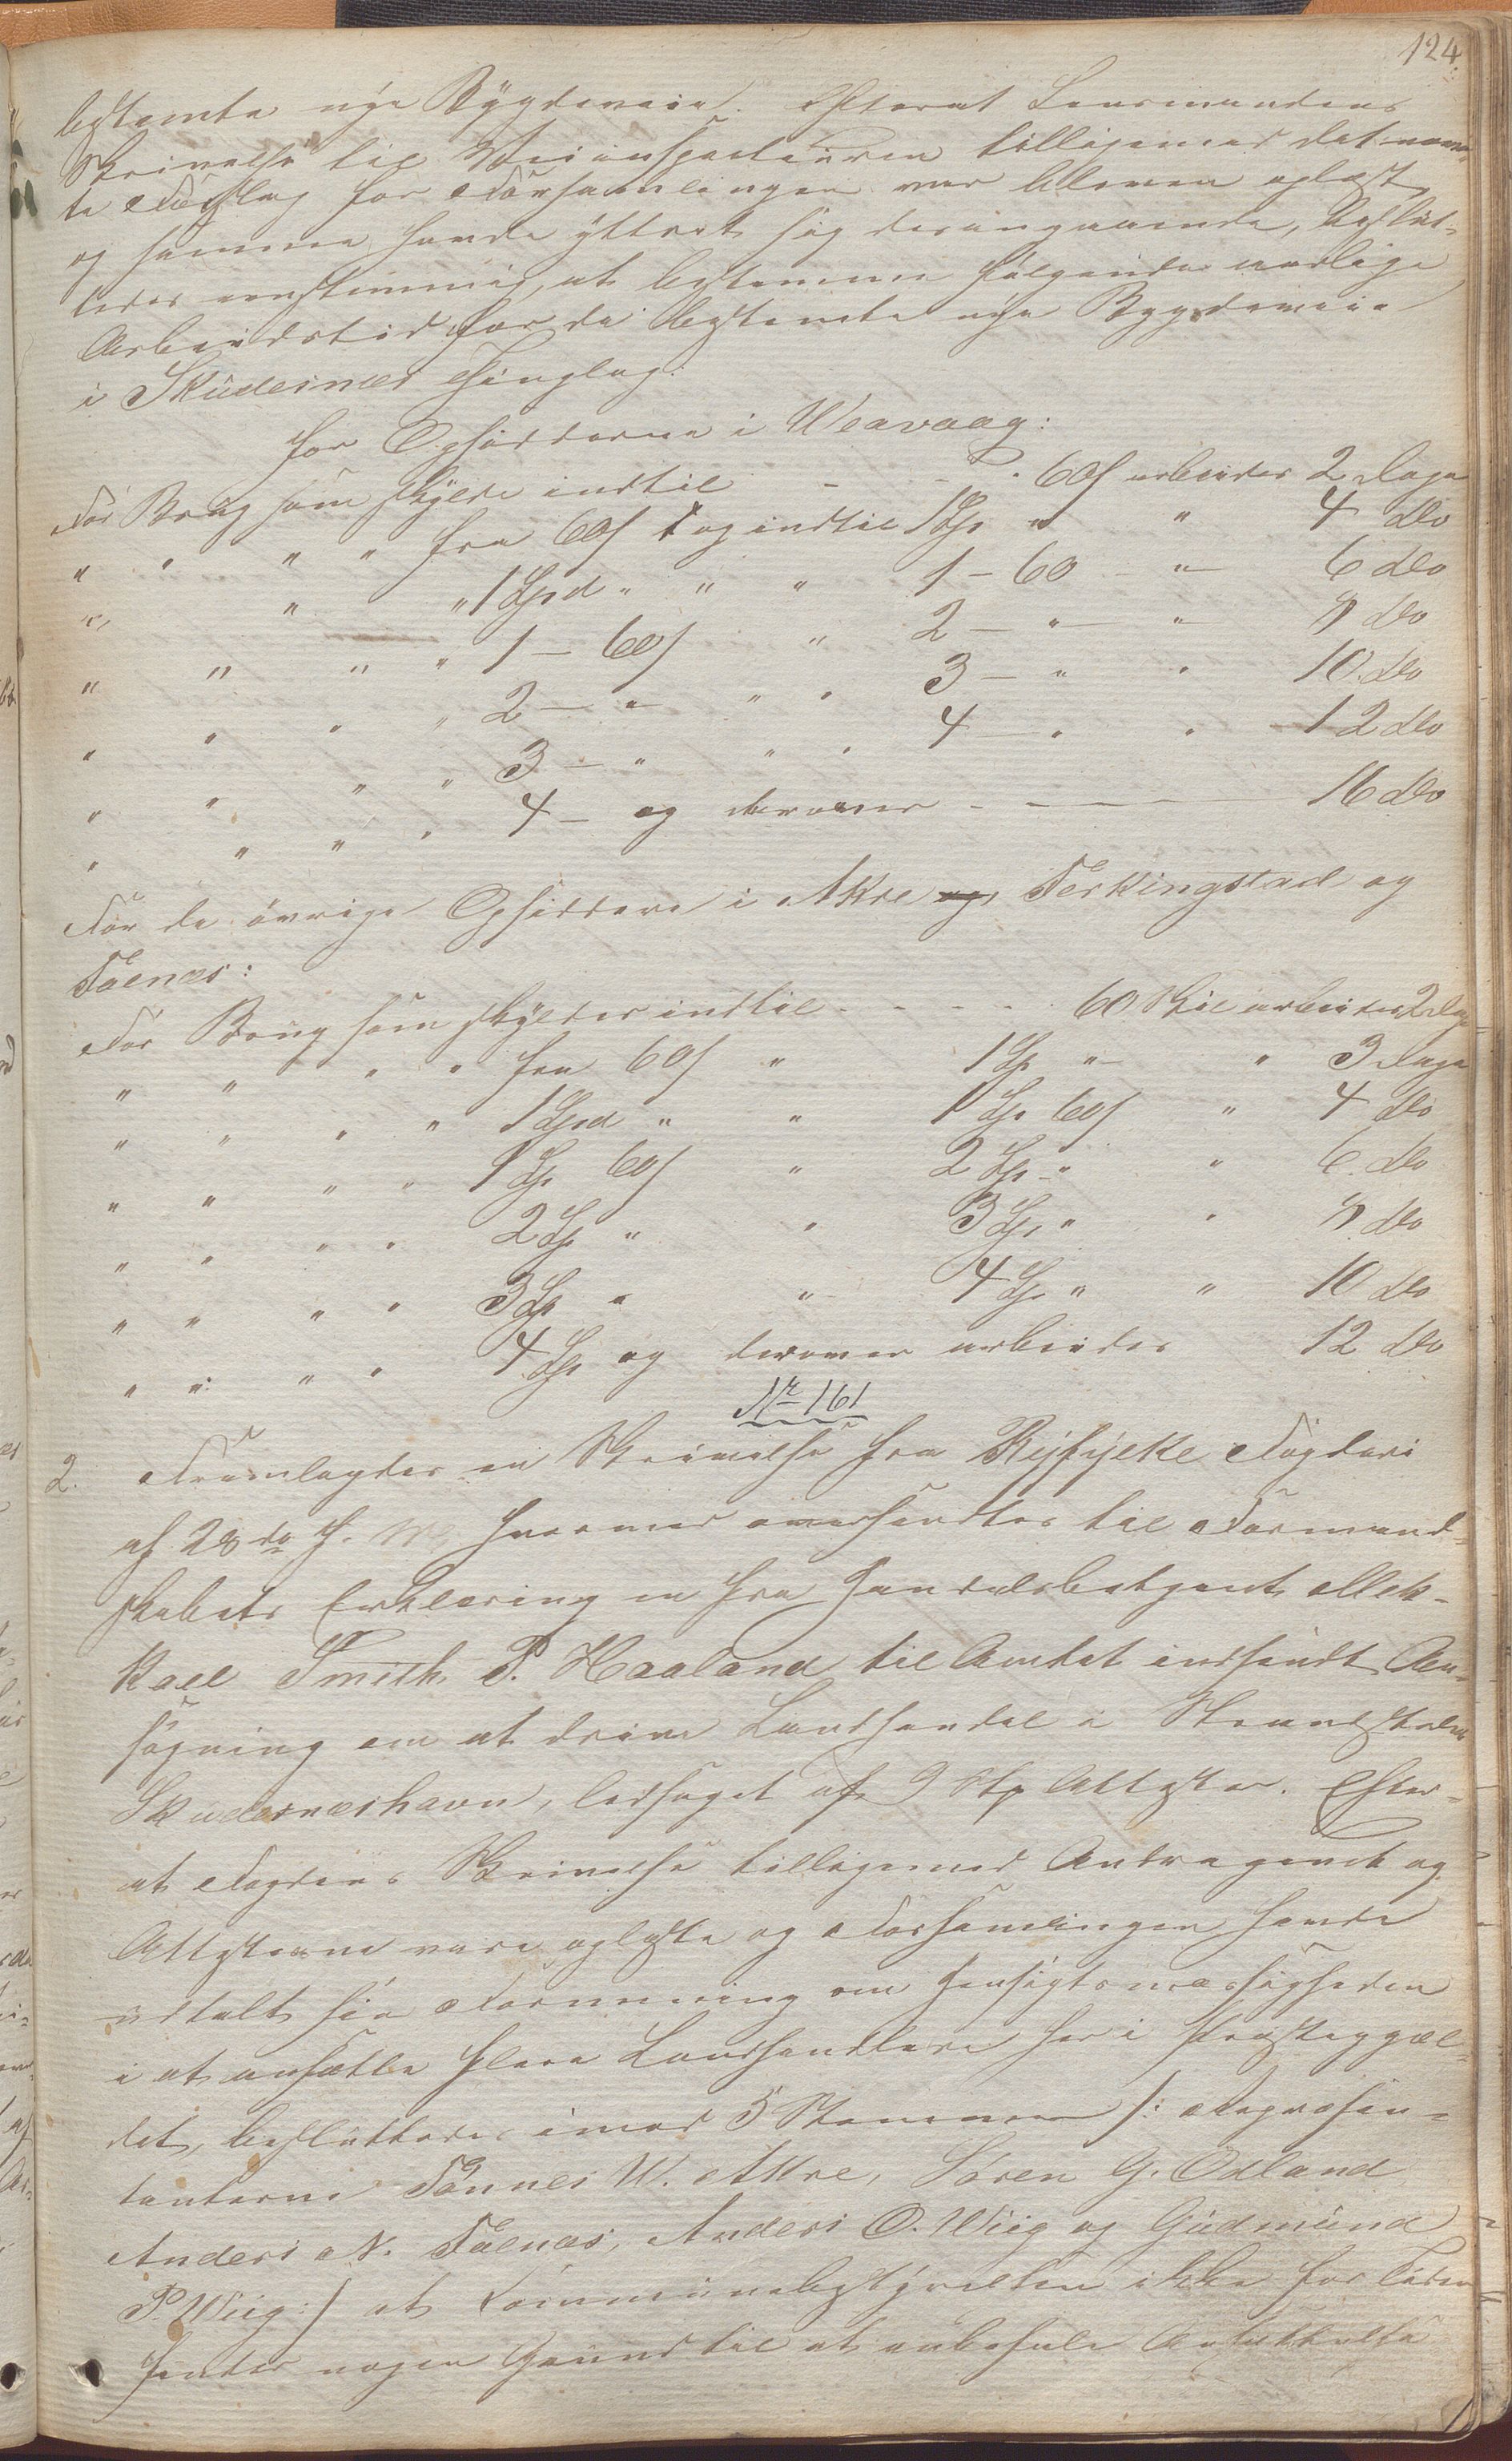 124
bestemte nye Bygdeveie. Efterat Lensmandens
Skrivelse til Veiinspecteuren tilligemed det nævn-
te Forslag for Forsamlingen var bleven oplæst
og samme havde yttret sig derangaaende, beslut-
tedes eenstemmig, at bestemme følgende aarlige
Arbeidstid for de bestemte nye Bygdeveie
i Skudesnæs Thinglag:
for Opsidderne i Weavaag:
For Brug som skylde indtil - - - 60 s arbeides 2 Dage
" " " " fra 60 s og indtil 1 Lp " " 4 do
" " " 1 Lpd " " " 1 - 60 - " - 6 do
" " " " 1 - 60 s " 2 - " - " - 8 do
" " " " 2 - " - " " 3 - " " 10 do
" " " " 3 - " " " 4 - " " 12 do
" " " " 4 - og derover - - - - 16 do
For de øvrige Opsiddere i Akre og, Ferkingstad og
Falnæs:
For Brug som skylder indtil - - - - 60 Skil arbeides 2 Dage
" " " " fra 60 s " 1 Lp " - " 3 Dage
" " " " 1 Lpd " " 1 Lp 60 s " 4 do
" " " " 1 Lp 60 s " 2 Lp - " " 6 do
" " " " 2 Lp " " 3 Lp " " 8 do
" " " " 3 Lp " " 4 Lp " " 10 do
" " " " 4 Lp og derover arbeides 12 do
Nr 161
2. Fremlagdes en Skrivelse fra Ryfylke Fogderi
af 28de f. M. hvormed oversendtes til Formand-
skabets Erklæring en fra Handelsbetjent Mek-
kael Smith P. Haaland til Amtet indsendt An-
søgning om at drive Landhandel i Strandstedet
Skudesnæshavn, ledsaget af 9 Stk Attester. Efter-
at Fogdens Skrivelse tilligemed Andragendet og
Attesterne vare oplæste og Forsamlingen havde
udtalt sin Formening om Hensigtsmæssigheden
i at ansætte flere Landhandlere her i Præstegjæl-
det, besluttedes imod 5 Stemmer /: Repræsen-
tanterne Tønnes W. Akre, Søren G. Odland
Anders N. Falnæs, Anders O. Wiig og Gudmund
P. Wiig :/ at Kommunebestyrelsen ikke for Tiden
finder nogen Grund til at anbefale Ansættelse